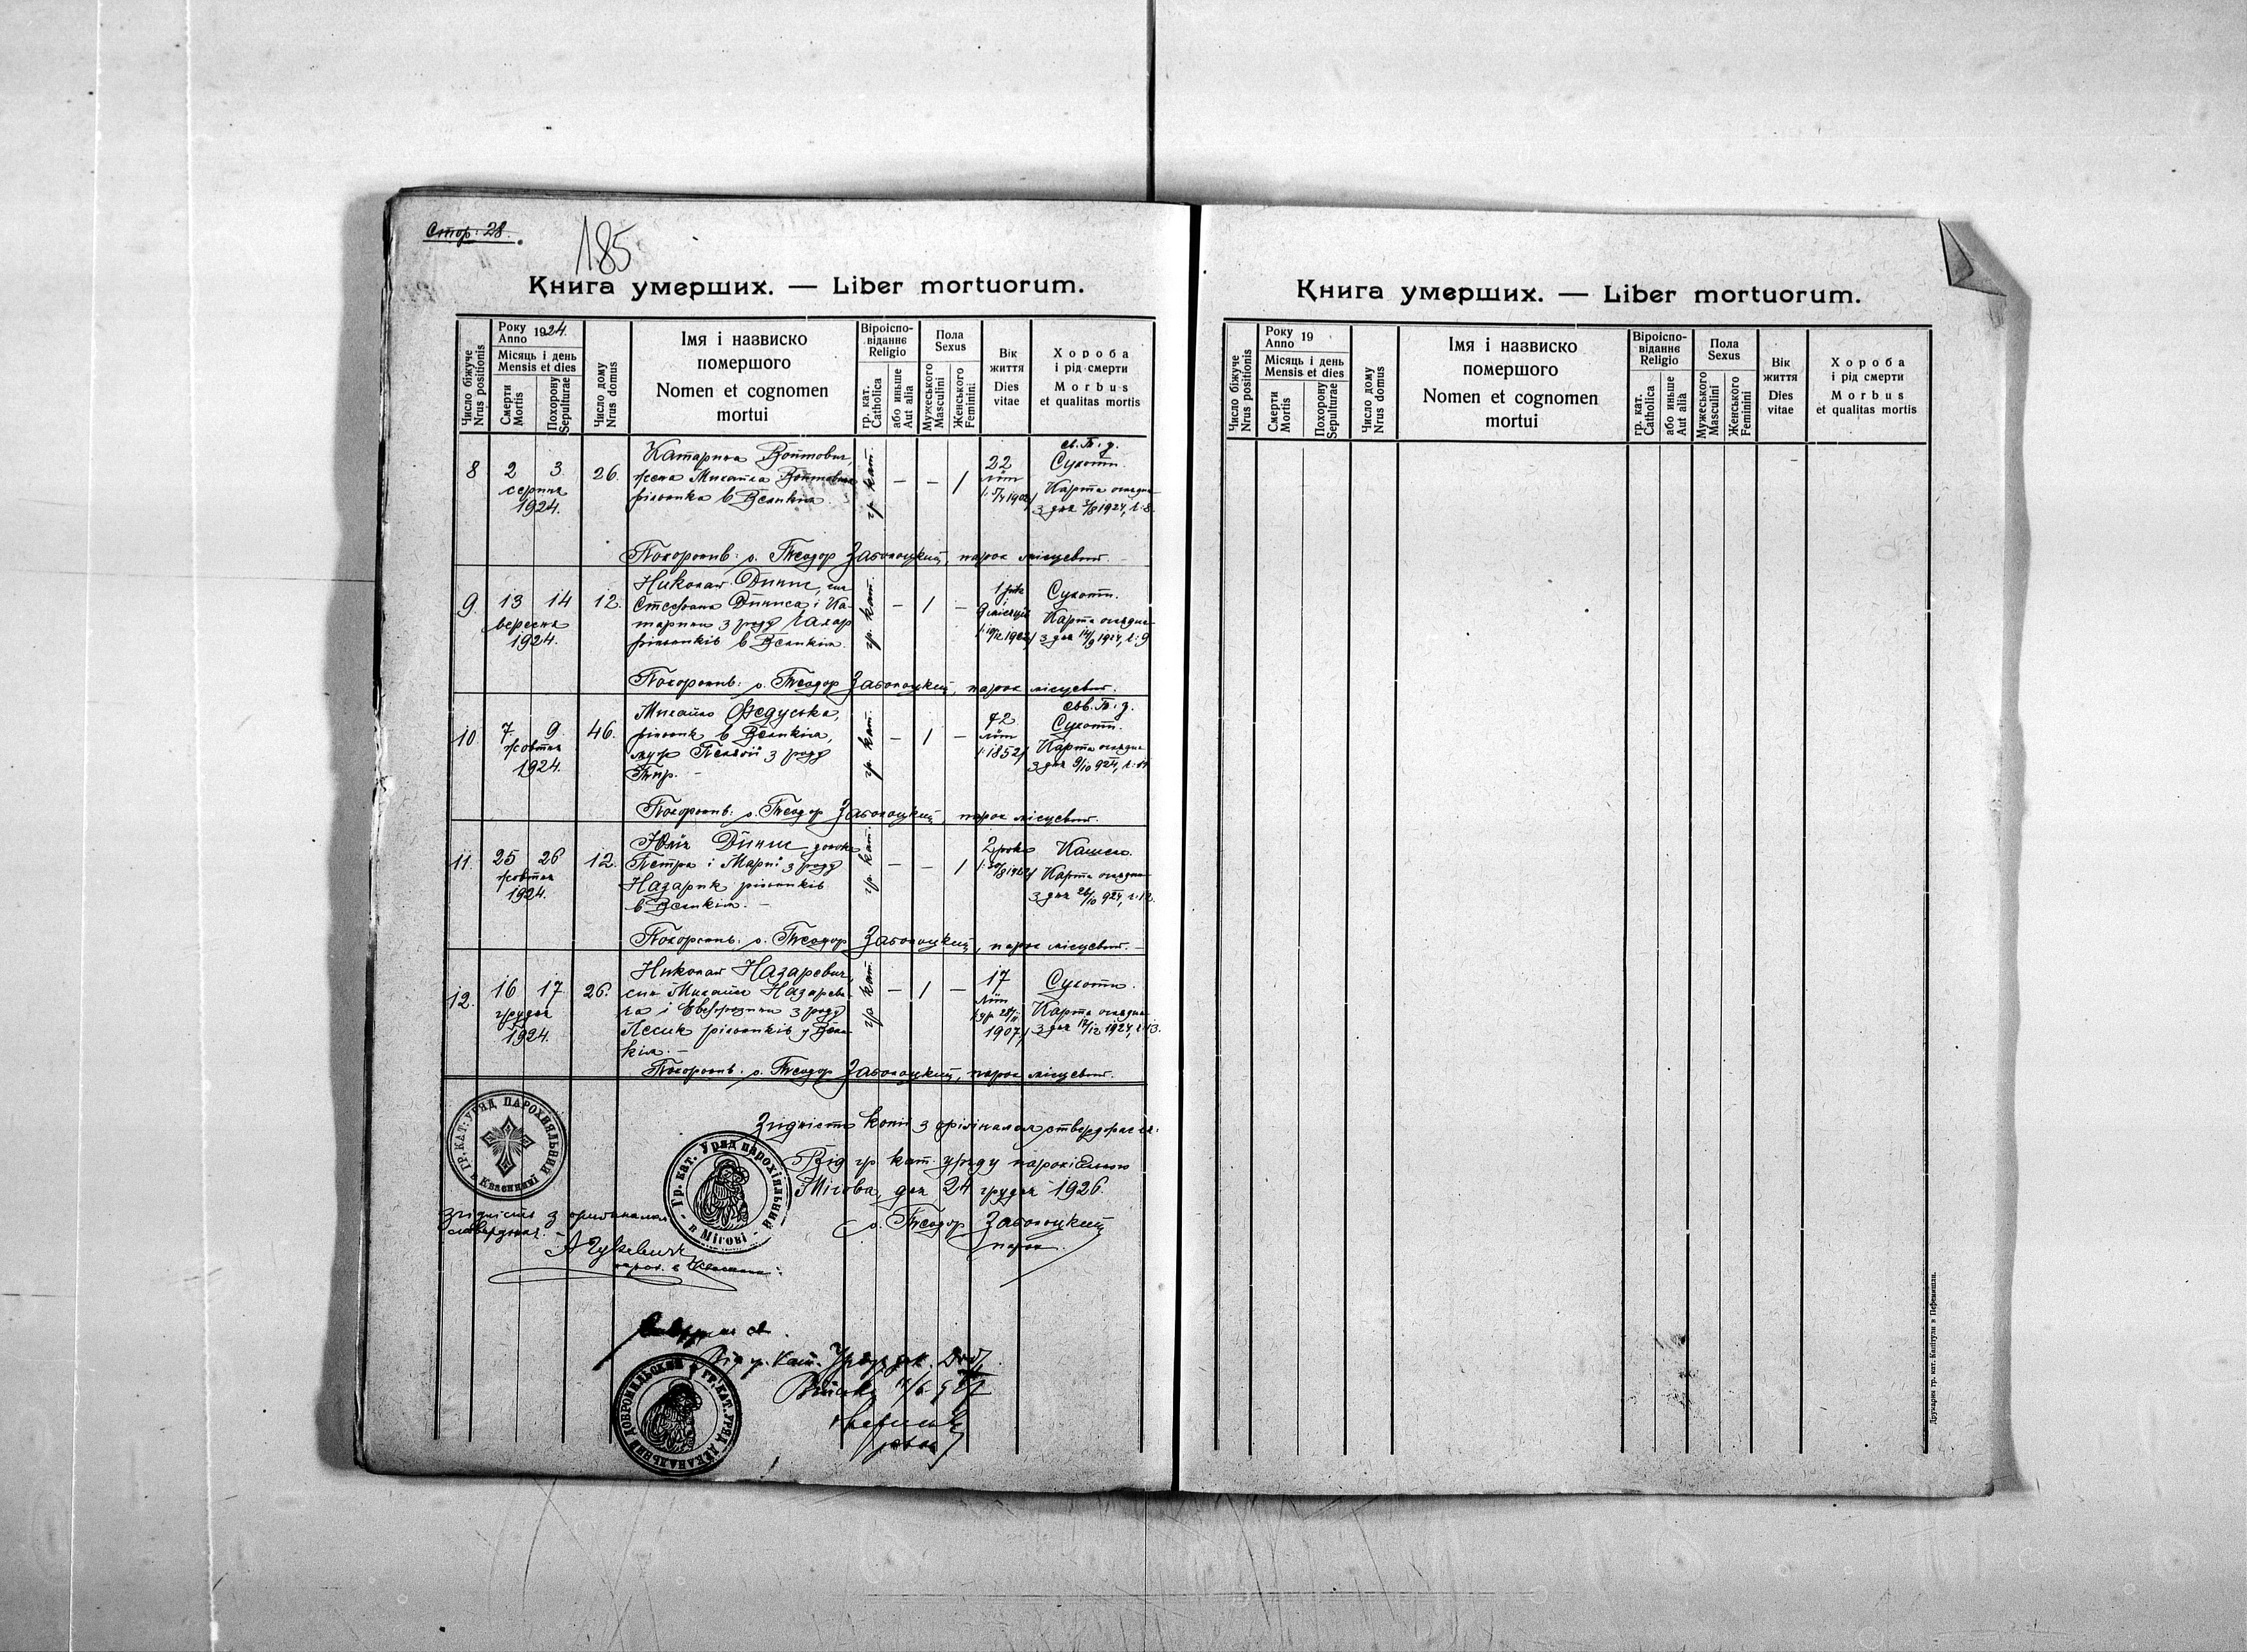 Стор: 28.
185
Книга умерших. — Liber mortuorum.
Число біжуче
Nrus positionis
Року
Anno 1924.
Місяць і день
Mensis et dies
Смерти
Mortis
Похорону
Sepulturae
Число дому
Nrus domus
Імя іназвиско
помершого
Nomen et cognomen
mortui
Віроіспо-
віданнє
Religio
гр. кат.
Catholica
або иньше
Aut alia
Пола
Sexus
Мужеського
Masculini
Женського
Feminini
Вік
життя
Dies
vitae
Хороба
і рід смерти
Morbus
et qualitas mortis
8 2 3 серпня 1924. 26.
Катарина Войтович,
жена Михайла Войтовича
рільника в
гр. кат. — — 1
22 літ
св. Т. д.
Сухоти.
Карта оглядин
з дня 3/8 1924, ч: 8.
Похоронив: о. Теодор Заболоцкий, парох місцевий.
9. 13 14 вересня 1924. 12.
Николай Динис, син
Стефана Диниса і Ка-
тарини з роду
рільників в
гр. кат. — 1 —
1 рік
і
9 місяців
Сухоти.
Карта оглядин
з дня 14/9 1924, ч: 9
Похоронив: о. Теодор Заболоцкий, парох місцевий.
10. 7. 9. жовтня 1924. 46.
Михайло Федуська,
рільник в
муж Пелагії з роду
Тир. —
гр. кат. — 1 —
72 літ
/:1852/
св. Т. д.
Сухоти.
Карта оглядин
з дня 9/10 924, ч:
Похоронив: о. Теодор Заболоцкий парох місцевий.
11. 25 26 жовтня 1924. 12.
Юлія Динис донька
Петра і Марії з роду
Назарик рільників
в
гр. кат. — — 1
2 роки
Кашель.
Карта оглядин
з дня 26/10 924, ч: 12.
Похоронив: о. Теодор Заболоцкий, парох місцевий. —
12. 16 17 грудня 1924. 26.
Николай Назаревич,
син Михайла Назареви-
ча і Евфрозини з роду
Лесик рільників у
гр. кат. — 1 —
17 літ
1907/
Сухоти.
Карта оглядин
з дня 17/12 1924, ч: 13.
Похоронив: о. Теодор Заболоцкий, парох місцевий.
ГР. КАТ. УРЯД ПАРОХІЯЛЬНИЙ
в Квасинині
Згідність копії з оріґіналом стверджається:
Від гр. кат. уряду парохіяльного
Мігова, дня 24 грудня 1926.
о. Теодор Заболоцкий
парох.
Гр. кат. Уряд парохіяльний
в Мігові
Згідність з оригіналом
стверджаю:
парох. в
ГР. КАТ. УРЯД ДЕКАНАЛЬНИЙ ДОБРОМИЛЬСКИЙ
Книга умерших. — Liber mortuorum.
Число біжуче
Nrus positionis
Року
Anno 19
Місяць і день
Mensis et dies
Смерти
Mortis
Похорону
Sepulturae
Число дому
Nrus domus
Імя і назвиско
помершого
Nomen et cognomen
mortui
Віроіспо-
віданнє
Religio
гр. кат.
Catholica
або иньше
Aut alia
Пола
Sexus
Мужеського
Masculini
Женського
Feminini
Вік
життя
Dies
vitae
Хороба
і рід смерти
Morbus
et qualitas mortis
Друкарня гр. кат. Капітули в Перемишли.